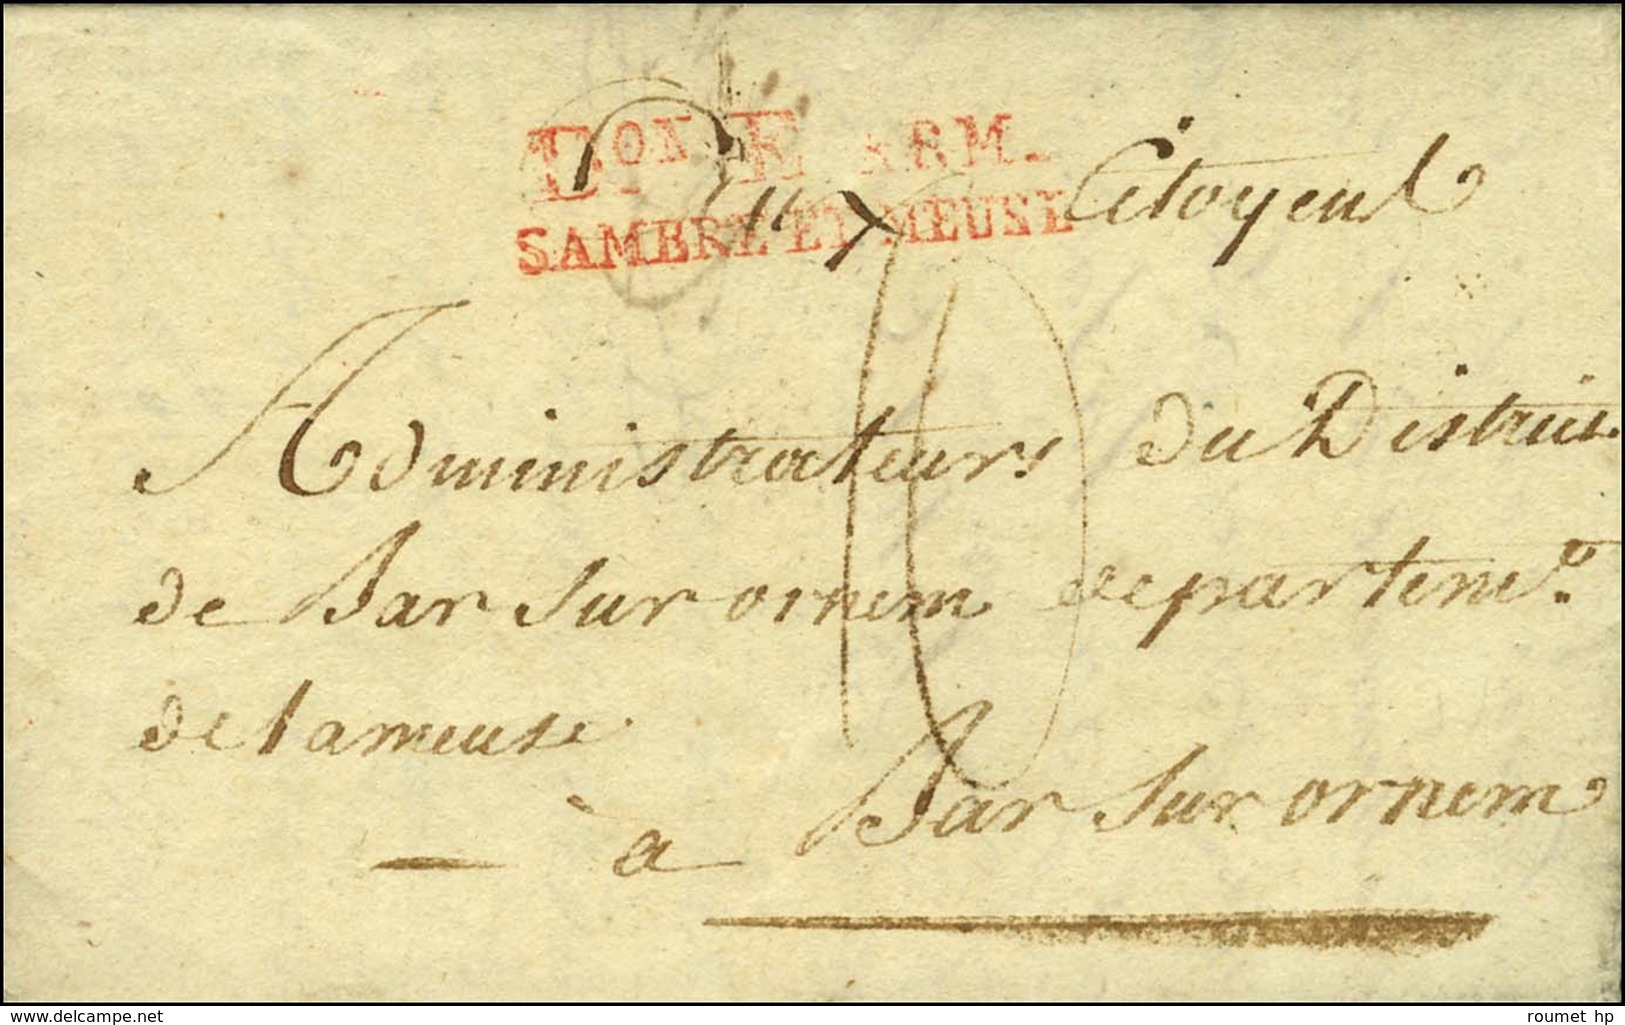 Don E ARM.
SAMBRE ET MEUSE
Aux Citoyens
Administrateurs du District
de Bar sur ornem departemt.
de la meuse
10
à Bar sur ornem
www.delcampe.net
roumet hp